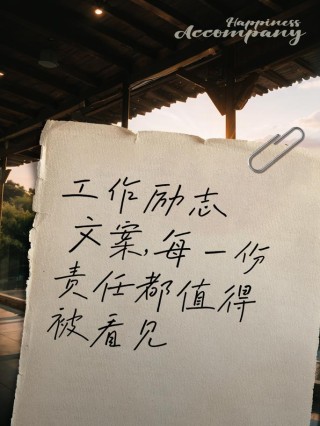 Happiness
Accompany
工作励志
文案,每一份
责任都值得
被看见